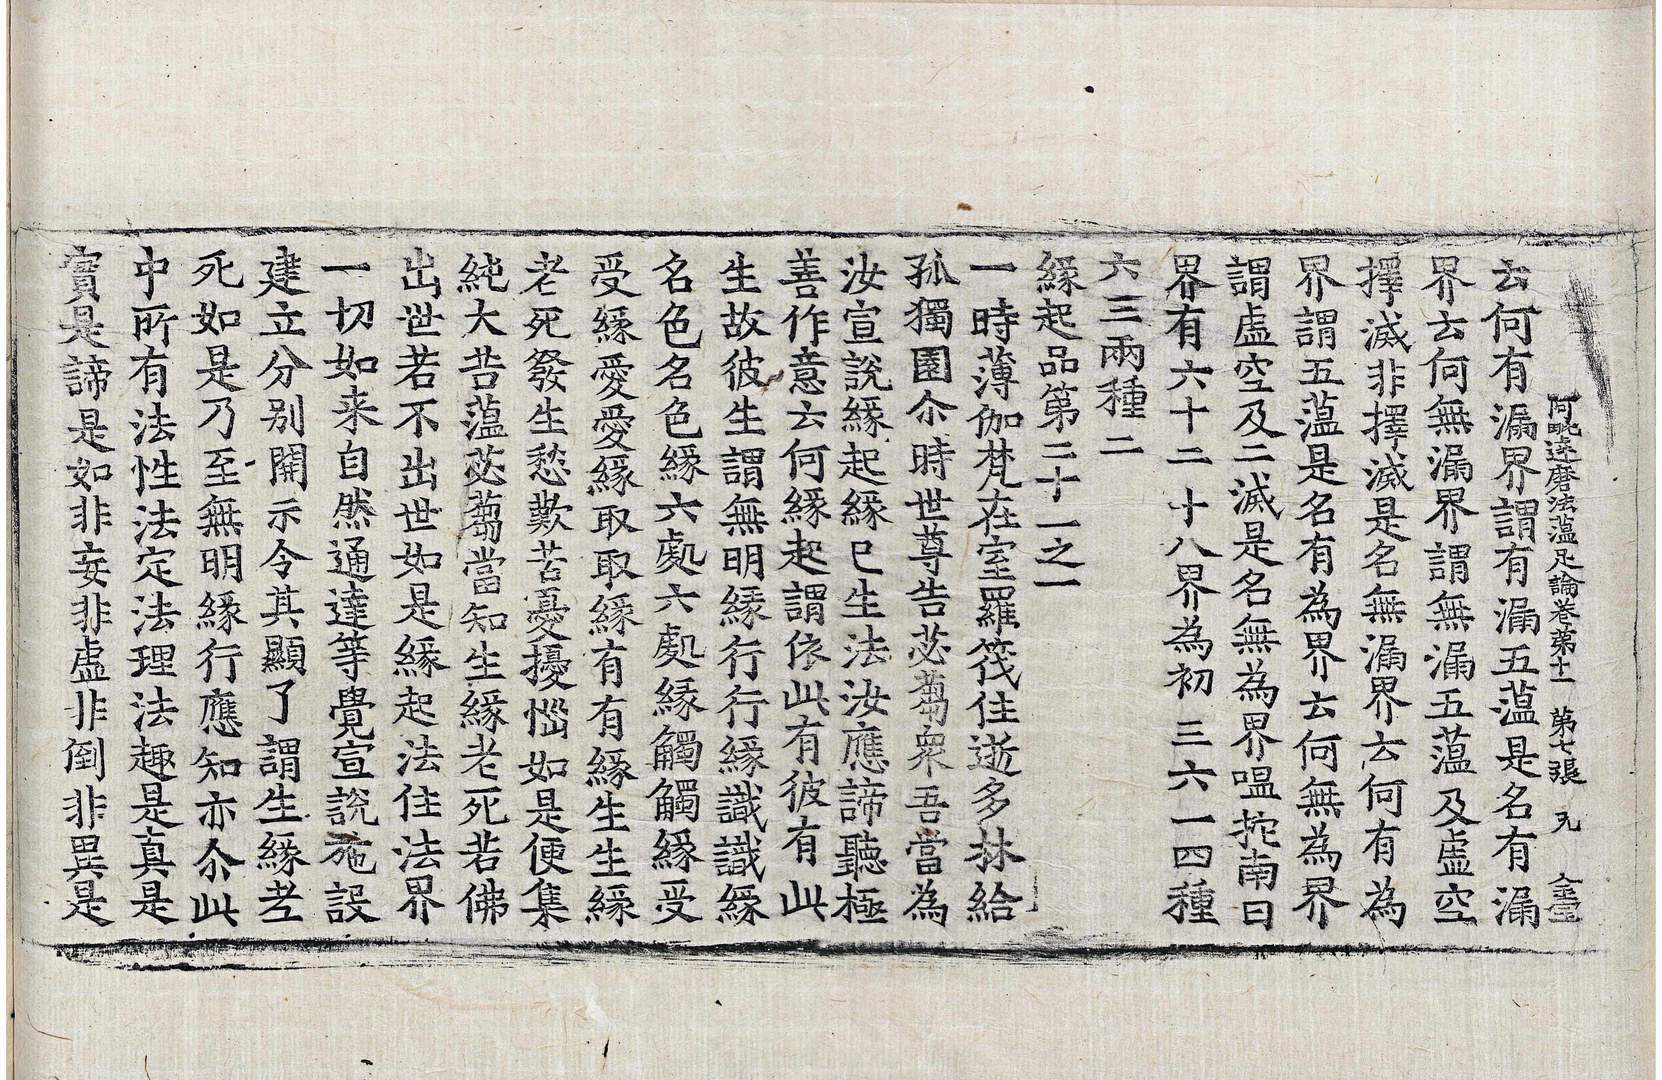 阿毗達磨法蘊足論卷第十一 第七張 㒫
云何有漏界謂有漏五蘊是名有漏
界云何無漏界謂無漏五蘊及虛空
擇滅非擇滅是名無漏界云何有為
界謂五蘊是名有為界云何無為界
謂虛空及二滅是名無為界嗢拕南曰
界有六十二十八界為初三六一四種
六三兩種二
緣起品第二十一之一
一時薄伽梵在室羅筏住逝多林給
孤獨園尒時世尊告苾蒭衆吾當為
汝宣說緣起緣已生法汝應諦聽極
善作意云何緣起謂依此有彼有此
生故彼生謂無明緣行行緣識識緣
名色名色緣六處六處緣觸觸緣受
受緣愛愛緣取取緣有有緣生生緣
老死發生愁歎苦憂擾惱如是便集
純大苦蘊苾蒭當知生緣老死若佛
出世若不出世如是緣起法住法界
一切如来自然通達等覺宣說施設
建立分別開示令其顯了謂生緣老
死如是乃至無明緣行應知亦尒此
中所有法性法定法理法趣是真是
實是諦是如非妄非虛非倒非異是